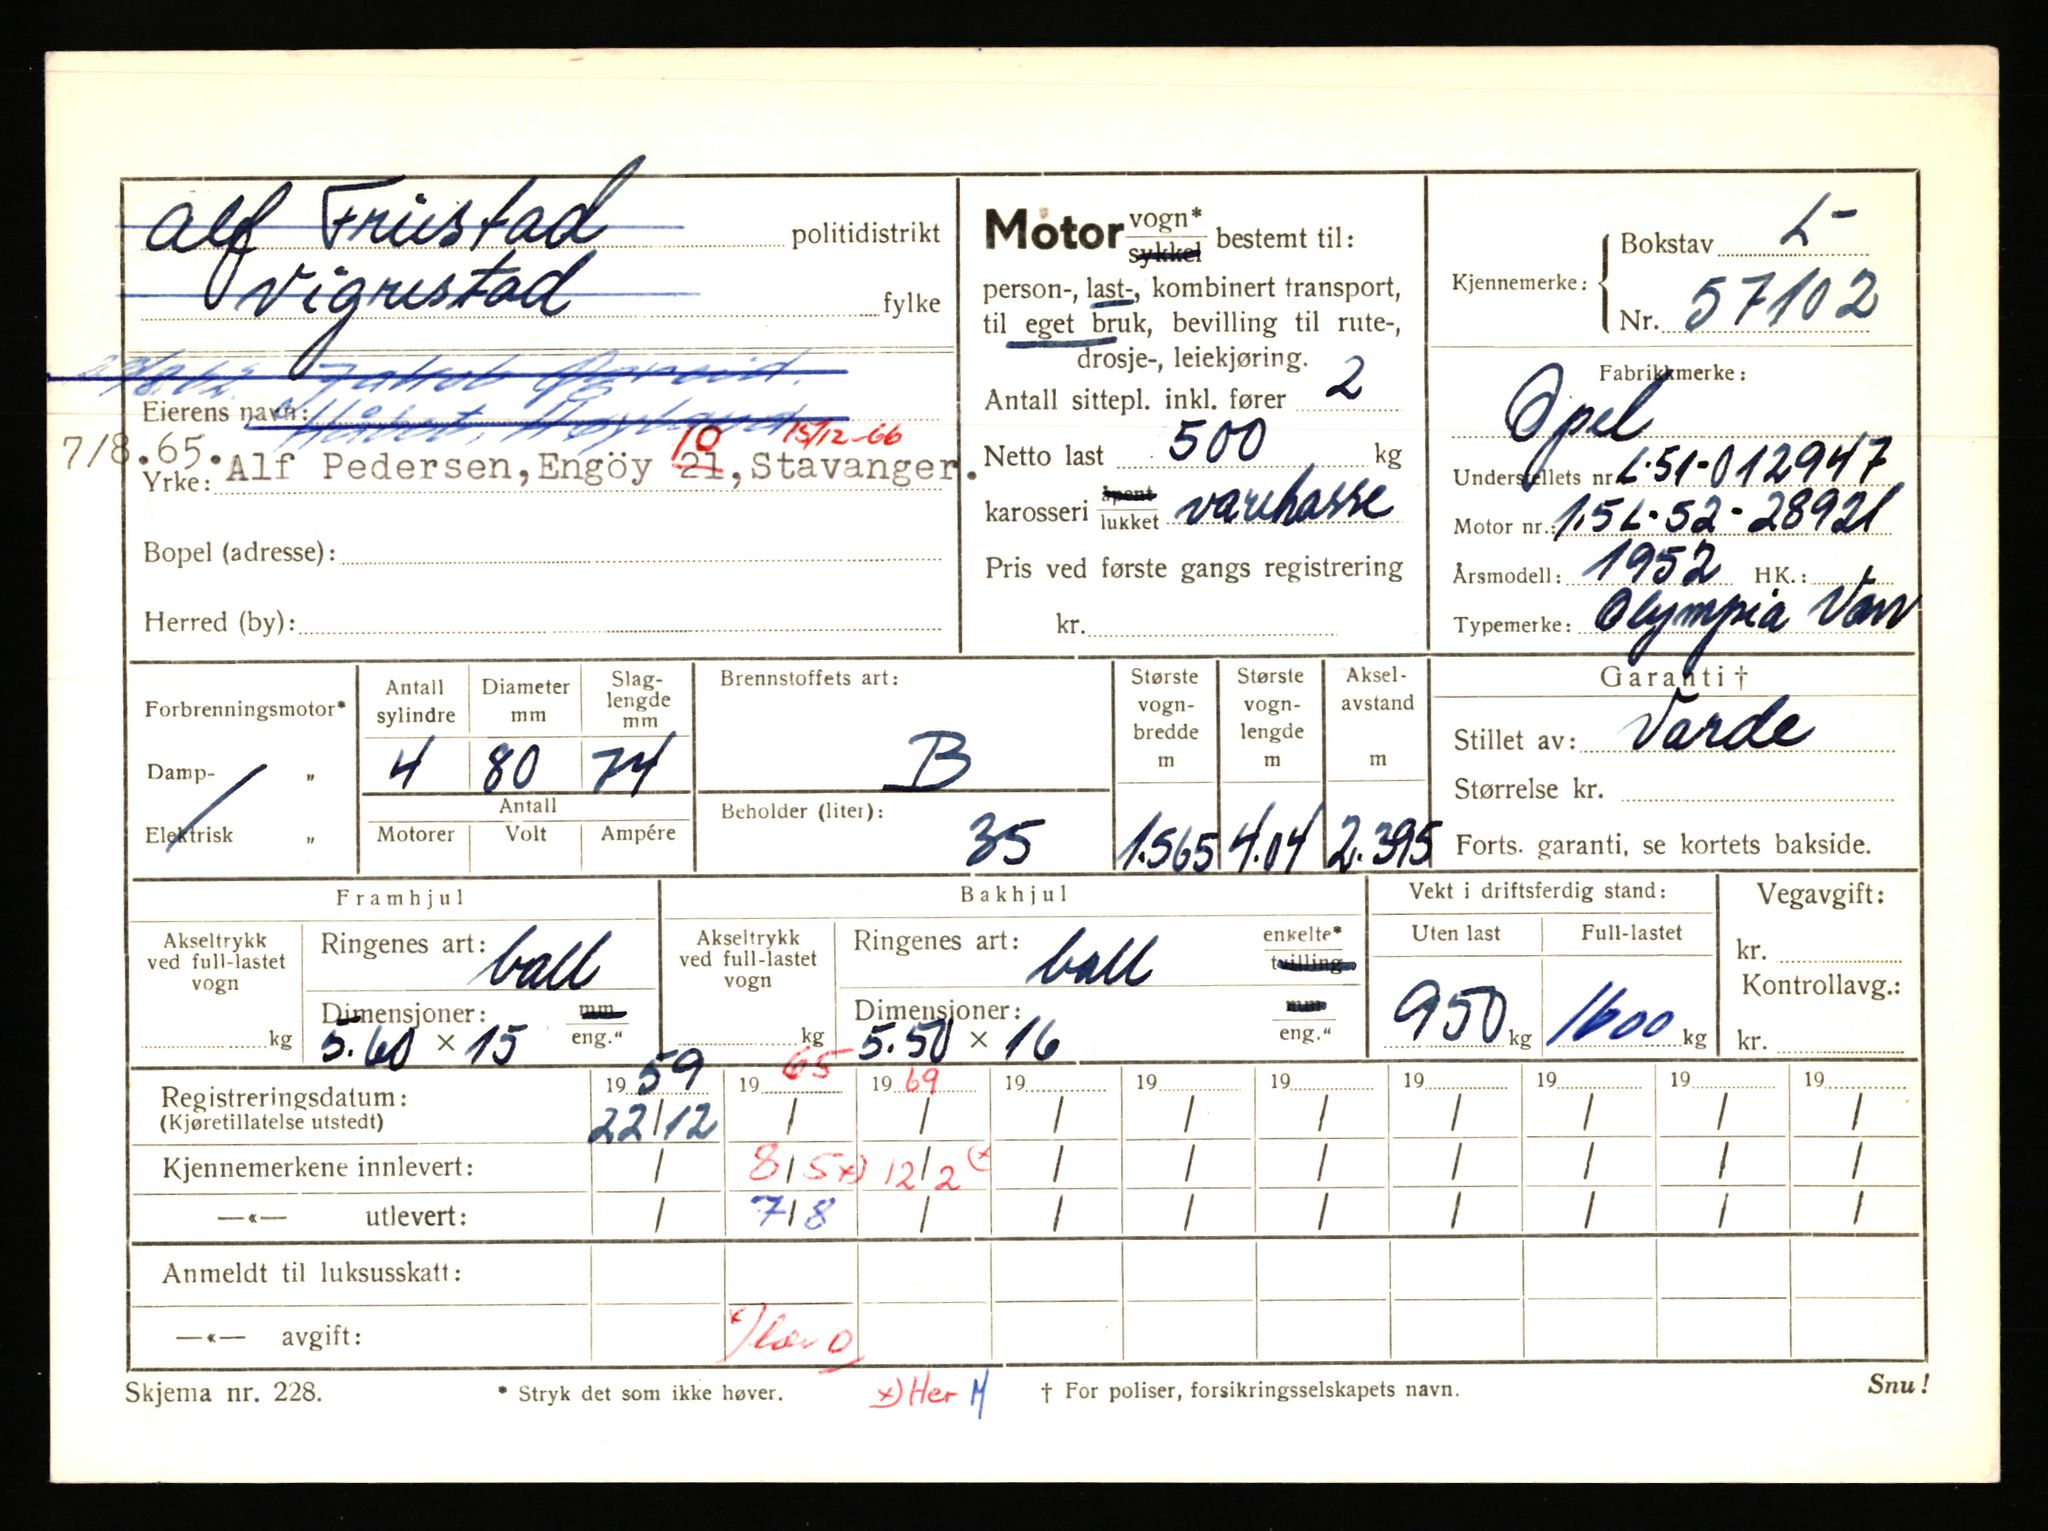 Alf Friestad politidistrikt
Vigrestad fylke
Eierens navn:
7/8.65. Alf Pedersen, Engöy 21, Stavanger.
10 15/12-66
Yrke:
Bopel (adresse):
Herred (by):
Motor vogn* sykkel bestemt til:
person-, last-, kombinert transport,
til eget bruk, bevilling til rute-,
drosje-, leiekjøring.
Antall sittepl. inkl. fører 2
Netto last 500 kg
karosseri åpent lukket varekasse
Pris ved første gangs registrering
kr.
Kjennemerke: Bokstav L-
Nr. 57102
Fabrikkmerke:
Opel
Understellets nr. L-51-012947
Motor nr.: 1.5L-52-28921
Årsmodell: 1952 HK.:
Typemerke: Olympia Varev
Forbrenningsmotor*
Damp- „
Elektrisk „
Antall sylindre 4
Diameter mm 80
Slag-lengde mm 74
Antall
Motorer Volt Ampére
Brennstoffets art:
B
Beholder (liter):
35
Største vogn-bredde m 1.565
Største vogn-lengde m 4.04
Aksel-avstand m 2.395
Garanti †
Stillet av: Varde
Størrelse kr.
Forts. garanti, se kortets bakside.
Framhjul
Akseltrykk ved full-lastet vogn
kg
Ringenes art: ball
Dimensjoner: mm eng."
5.60 × 15
Bakhjul
Akseltrykk ved full-lastet vogn
kg
Ringenes art: ball enkelte* tvilling
Dimensjoner: mm eng."
5.50 × 16
Vekt i driftsferdig stand:
Uten last Full-lastet
950 kg 1600 kg
Vegavgift:
kr.
Kontrollavg.:
kr.
Registreringsdatum: 19 59 19 65 19 69 19 19 19 19 19 19 19
(Kjøretillatelse utstedt) 22/12 / / / / / / / / /
Kjennemerkene innlevert: / 8/5 x) 12/2 x) / / / / / / /
—«— utlevert: / 7/8 / / / / / / / /
Anmeldt til luksusskatt:
—«— avgift: x) her O
Skjema nr. 228. * Stryk det som ikke høver. x) Her M † For poliser, forsikringsselskapets navn. Snu!